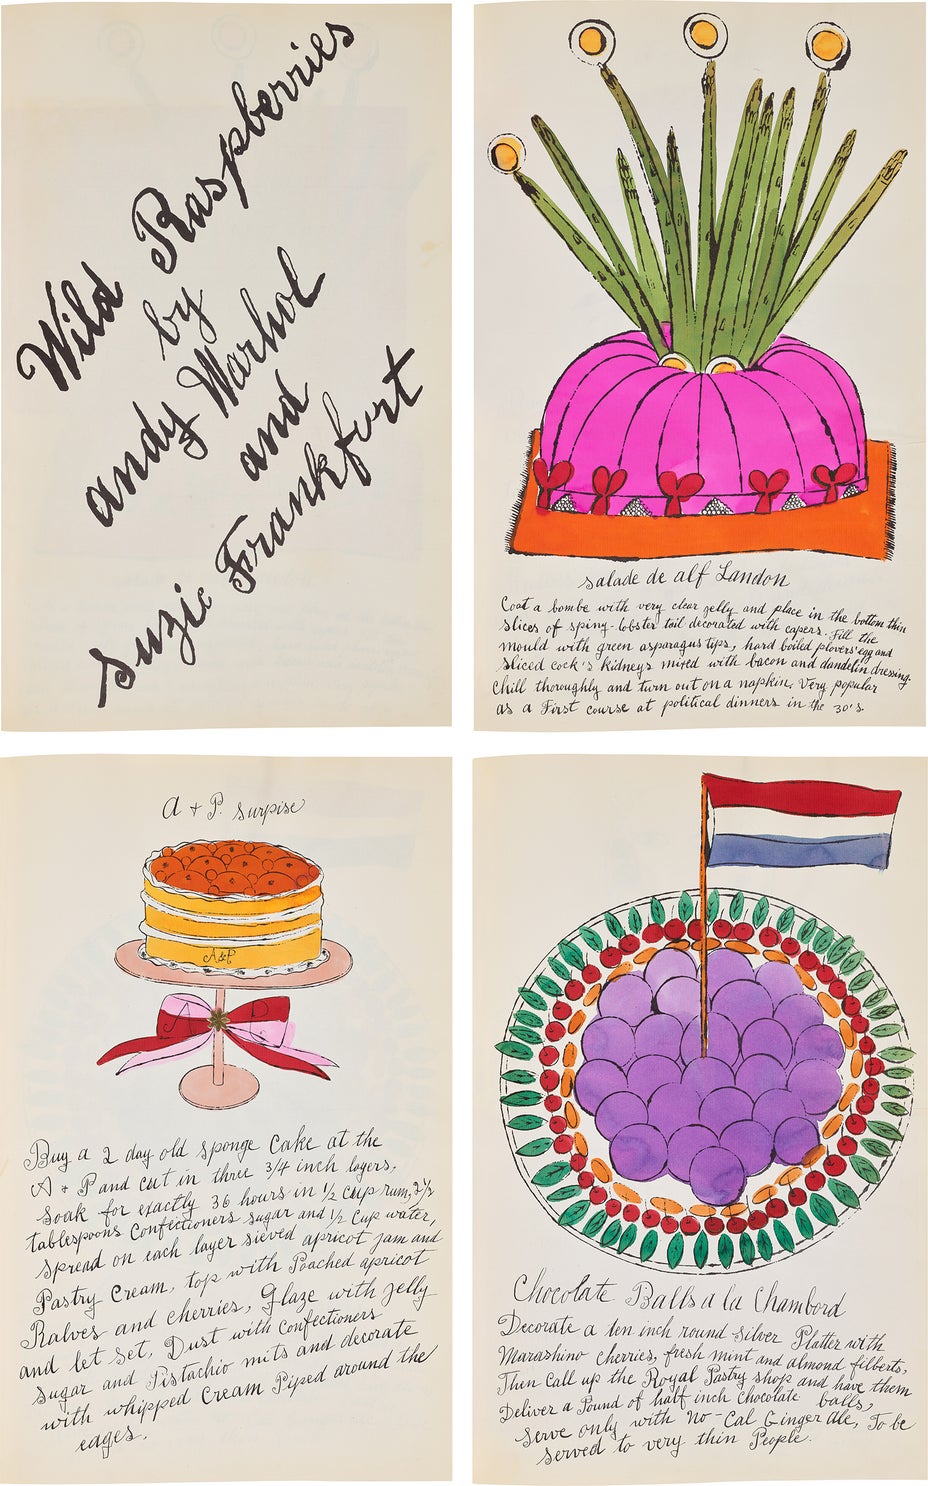 Wild Raspberries
by
andy Warhol
and
Suzie Frankfurt
salade de alf Landon
Coat a bombe with very clear jelly and place in the bottom thin
slices of spiny-lobster tail decorated with capers. Fill the
mould with green asparagus tips, hard boiled plovers' egg and
sliced cock's kidneys mixed with bacon and dandelin dressing.
Chill thoroughly and turn out on a napkin. Very popular
as a First course at political dinners in the 30's.
A + P. surpise
A&P
A P
Buy a 2 day old sponge Cake at the
A + P and cut in three 3/4 inch layers,
Soak for exactly 36 hours in 1/2 cup rum, 2 1/2
tablespoons Confectioners sugar and 1/2 Cup water,
Spread on each layer sieved apricot jam and
Pastry Cream, top with Poached apricot
Halves and cherries, Glaze with jelly
and let set. Dust with Confectioners
Sugar and Pistachio nuts and decorate
with whipped Cream Piped around the
eages.
Chocolate Balls a la Chambord
Decorate a ten inch round silver Platter with
Marashino cherries, fresh mint and almond filberts,
Then Call up the Royal Pastry shop and have them
Deliver a Pound of half inch Chocolate balls,
Serve only with No-Cal Ginger Ale, To be
Served to very thin People.